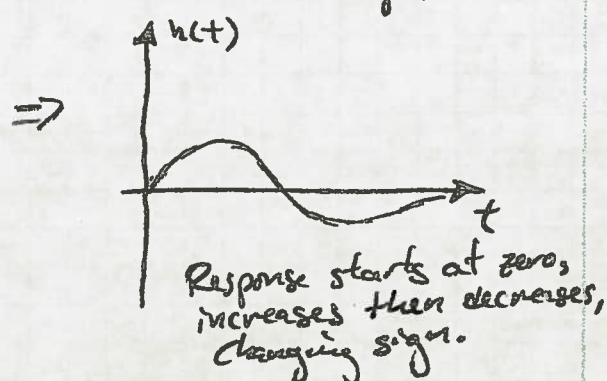 h(t)
⇒
t
Response starts at zero,
increases then decreases,
changing sign.